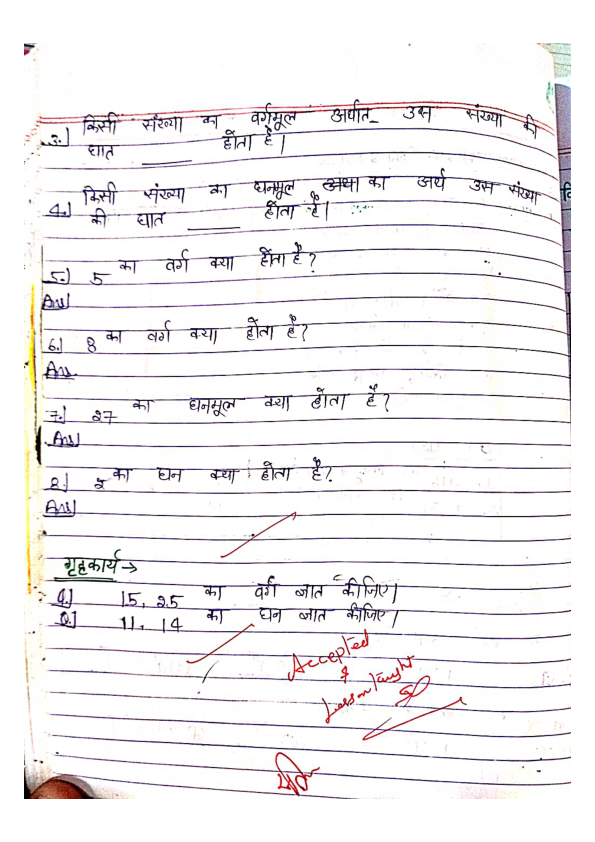 3.) किसी संख्या का वर्गमूल अर्थात- उस संख्या की
घात _____ होता है।
4.) किसी संख्या का घनमूल का अर्थ उस संख्या
की घात _____ होता है।
5.) 5 का वर्ग क्या होता है?
Ans)
6.) 8 का वर्ग क्या होता है?
Ans.
7.) 27 का घनमूल क्या होता है?
Ans)
8.) का घन क्या होता है?
Ans)
गृहकार्य→
Q.) 15, 25 का वर्ग ज्ञात कीजिए।
Q.) 11, 14 का घन ज्ञात कीजिए।
Accepted
&
Lesson taught